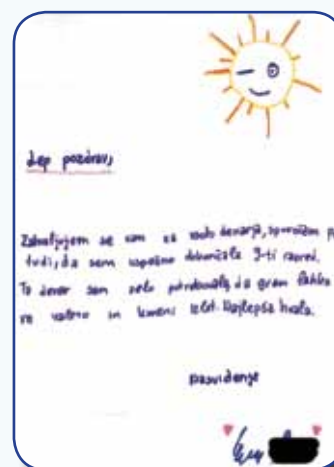 Lep pozdrav,
Zahvaljujem se vam za vsoto denarja, sporočam pa
tudi, da sem uspešno dokončala 9-ti razred.
Ta denar sem zelo potrebovala, da grem lahko
na valeto in končni izlet. Najlepša hvala.
Nasvidenje